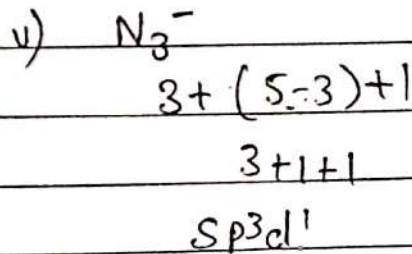 v) N₃⁻
3+(5-3)+1
3+1+1
Sp³d¹